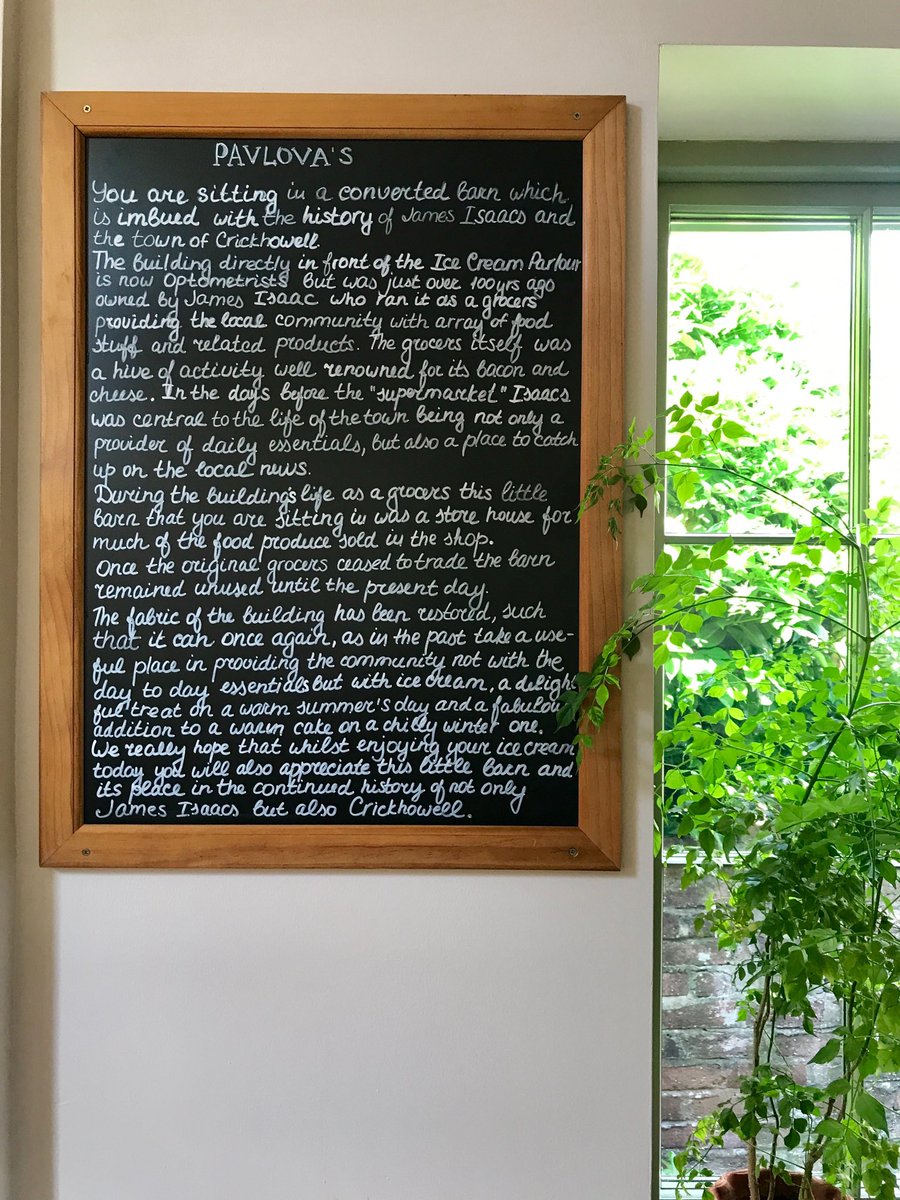 PAVLOVA'S
You are sitting in a converted barn which
is imbued with the history of James Isaacs and
the town of Crickhowell.
The building directly in front of the Ice Cream Parlour
is now Optometrists but was just over 100yrs ago
owned by James Isaac who ran it as a grocers
providing the local community with array of food
stuff and related products. The grocers itself was
a hive of activity well renowned for its bacon and
cheese. In the days before the "supermarket" Isaacs
was central to the life of the town being not only a
provider of daily essentials, but also a place to catch
up on the local news.
During the building's life as a grocers this little
barn that you are sitting in was a store house for
much of the food produce sold in the shop.
Once the original grocers ceased to trade the barn
remained unused until the present day.
The fabric of the building has been restored, such
that it can once again, as in the past take a use-
ful place in providing the community not with the
day to day essentials but with ice cream, a deligh
ful treat on a warm summer's day and a fabulou
addition to a warm cake on a chilly winter one.
We really hope that whilst enjoying your ice cream
today you will also appreciate this little barn and
its place in the continued history of not only
James Isaacs but also Crickhowell.